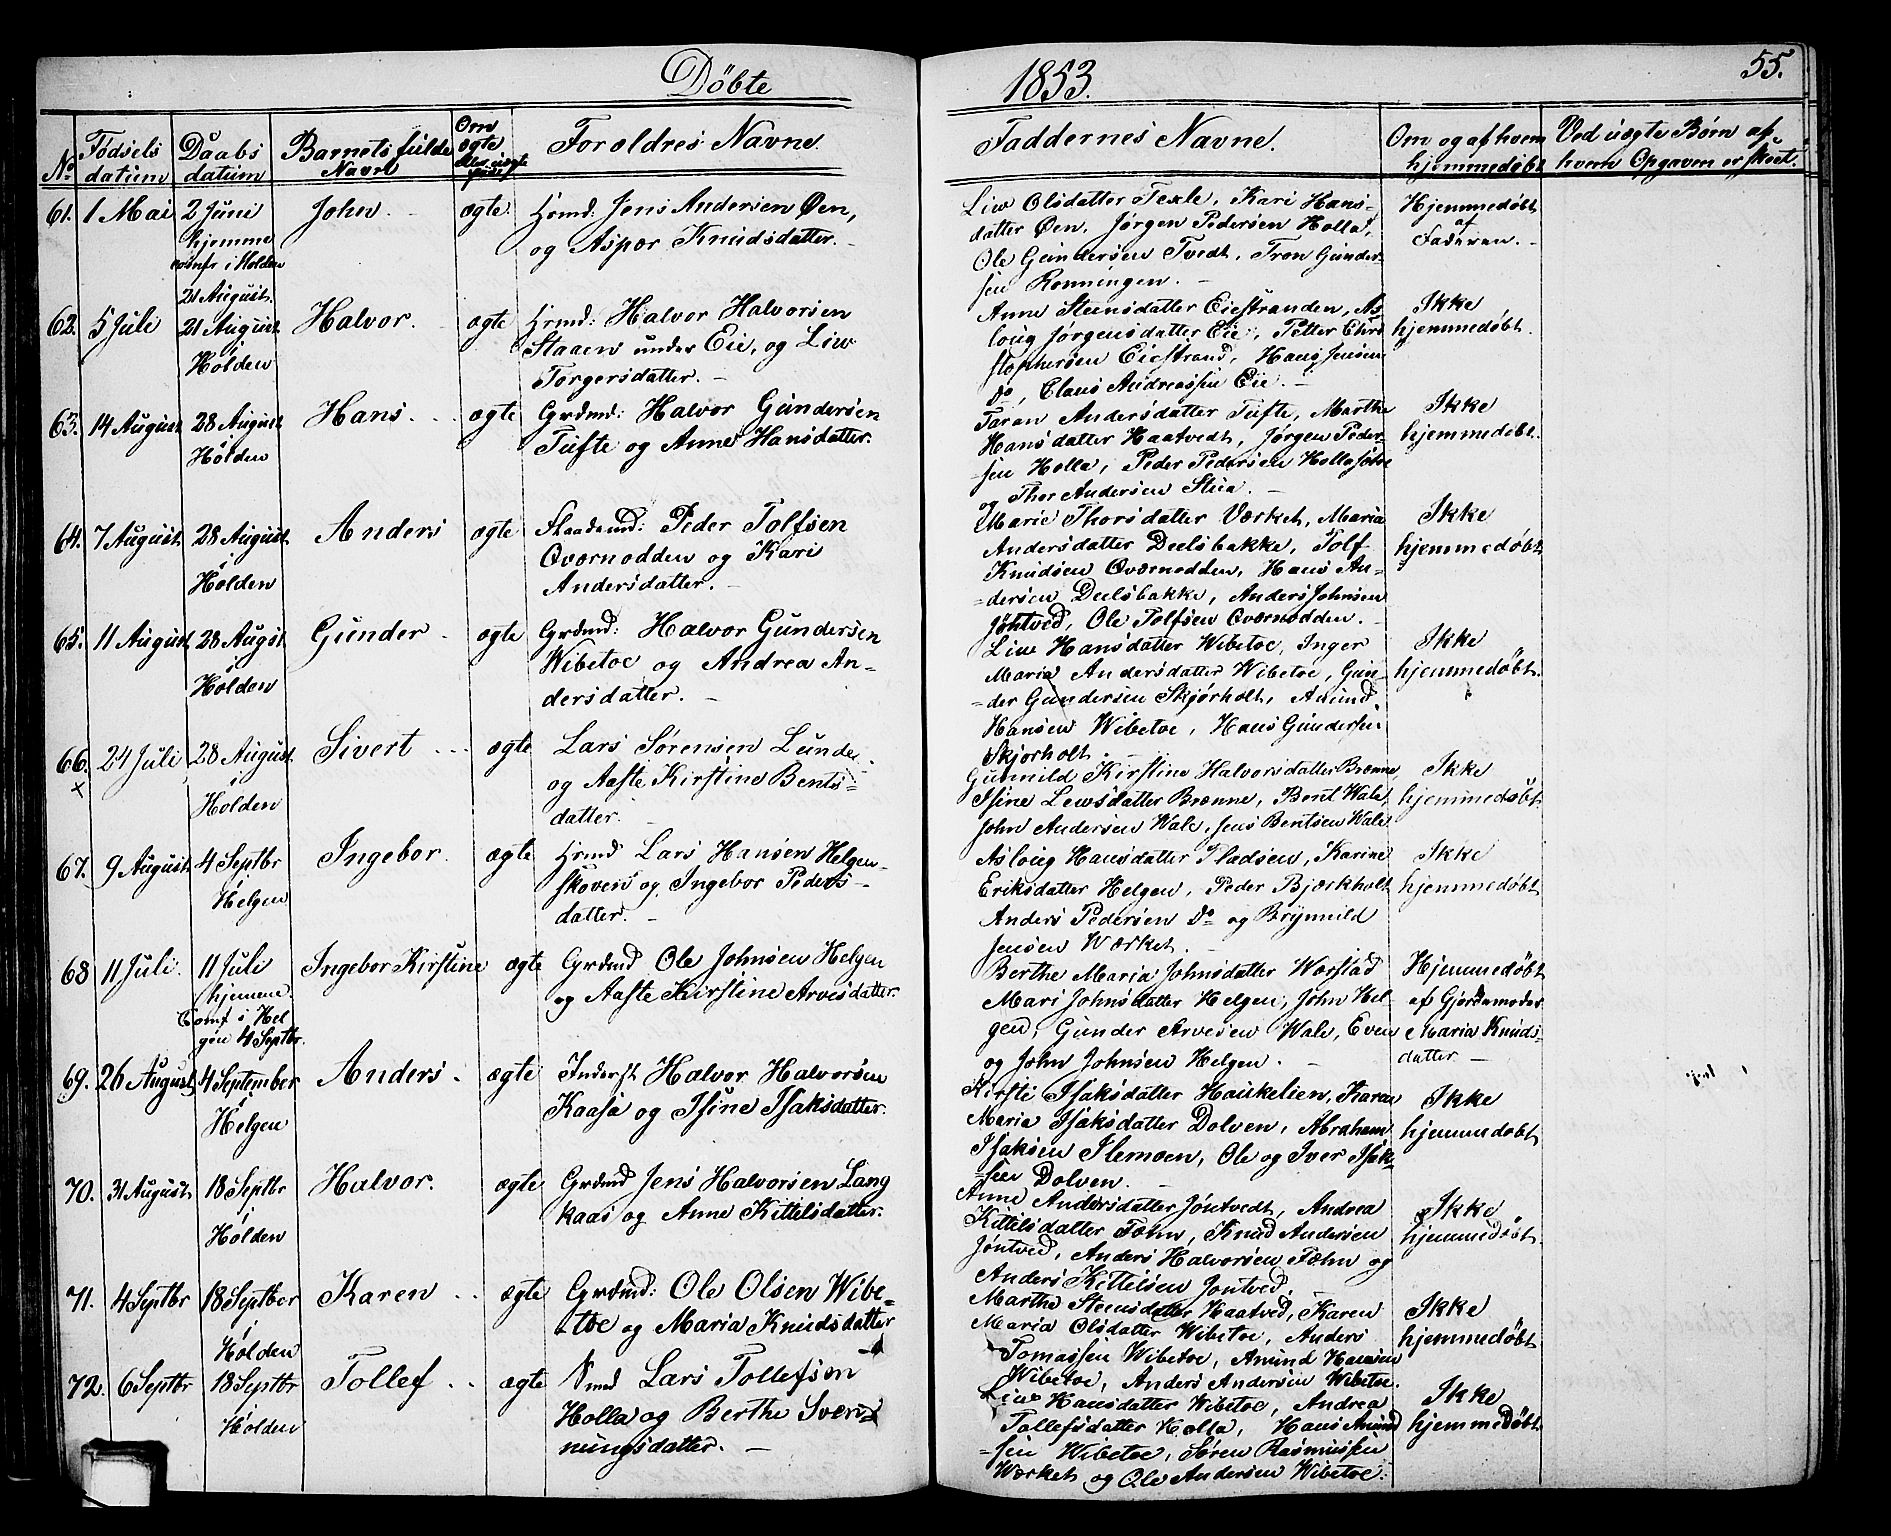 Döbte
1853.
55.
No
Födsels datum
Daabs datum
Barnets fulde Navn
Om ægte eller uægte
Forældres Navne
Faddernes Navne.
Om og af hvem hjemmedöbt
Ved uægte Börn af hvem Opgaven er skeet.
61. 1 Mai
2 Juni
hjemme
confr i Holden
21 August.
John
ægte
Hrmd: Jens Andersen Øen,
og Aspær Knudsdatter.
Liw Olsdatter Texle, Kari Hans-
datter Øen, Jörgen Pedersen Holla,
Ole Gundersen Tvedt, Tron Gunder
sen Ronningen.
Hjemmedöbt
af
Faderen.
62. 5 Juli
21 August
i
Holden
Halvor.
ægte
Hrmd: Halvor Halvorsen
Staaen under Eie, og Liw
Torgersdatter.
Anne Steensdatter Eiestranden, As-
loug Jörgensdatter Eie, Petter Chri
stophersen Eiestrand, Hans Jensen
Do, Claus Andreassen Eie.
Ikke
hjemmedöbt.
63. 14 August
28 August
i
Holden
Hans.
ægte
Grdmd: Halvor Gundersen
Tufte og Anne Hansdatter.
Taran Andersdatter Tufte, Marthe
Hansdatter Haatvedt, Jörgen Peder-
sen Holla, Peder Pedersen Holla
og Thor Andersen Stua.
Ikke
hjemmedöbt.
64. 7 August
28 August
i
Holden
Anders
ægte
Peder Tolfsen
Qværnodden og Kari
Andersdatter.
Marie Thorsdatter Værket, Maria
Andersdatter Deelsbakke, Tolf
Knudsen Qværnodden, Hans An-
dersen Deelsbakke, Anders Johnsen
Jöntved, Ole Tolfsen Qværnodden.
Ikke
hjemmedöbt
65. 11 August
28 Augst
i
Holden
Gunder
ægte
Grdmd: Halvor Gundersen
Wibetoe og Andrea An-
dersdatter.
Liw Hansdatter Wibetoe, Inger
Maria Andersdatter Wibetoe, Gun-
der Gundersen Skjörholt, Amund
Hansen Wibetoe, Hans Gundersen
Skjorholt.
Ikke
hjemmedöbt.
66. 24 Juli
x
28 August
i
Holden
Sivert
ægte
Lars Sörensen Lunde
og Aaste Kirstine Bents-
datter.
Gunnild Kirstine Halvorsdatter Brænne,
Isine Lewsdatter Brænne, Bent Wale,
John Andersen Wale, Jens Bentsen Wale
Ikke
hjemmedöbt
67. 9 August
4 Septbr
i
Helgen
Ingebor.
ægte
Hrmd Lars Hansen Helgen-
skoven og Ingebor Peders-
datter.
Asloug Hansdatter Pladsen, Karine
Eriksdatter Helgen, Peder Bjærkholt
Anders Pedersen Do og Brynnild
Jensen Værket.
Ikke
hjemmedöbt
68 11 Juli.
11 Juli
hjemme.
Comf i Hel
gen 4 Septbr.
Ingebor Kirstine
ægte
Grdmd Ole Johnsen Helgen
og Aaste Kirstine Arvesdatter.
Berthe Maria Johnsdatter Worstad
Mari Johnsdatter Helgen, John Hel-
gen, Gunder Arvesen Wale, Even
og John Johnsen Helgen.
Hjemmedöbt
af Gjordemoder
Maria Knuds-
datter.
69. 26 August
4 September
i
Helgen
Anders.
ægte
Inderst Halvor Halvorsen
Kaasa og Isine Isaksdatter.
Kirsti Isaksdatter Haukelien, Karen
Maria Isaksdatter Dolven, Abraham
Isaksen Slemoen, Ole og Iver Isak-
sen Dolven.
Ikke
hjemmedobt
70. 31 August
18 Septbr
i
Holden
Halvor.
ægte
Grdmd Jens Halvorsen Lang
kaas og Anne Kittilsdatter.
Anne Andersdatter Jöntvedt, Andrea
Kittilsdatter Fæhn, Knud Andersen
Jöntved, Anders Halvorsen Fæhn og
Anders Kittilsen Jontved.
Ikke
hjemmedöbt.
71. 4 Septbr
18 Septber
i
Holden
Karen
ægte
Grdmd: Ole Olsen Wibe-
toe og Maria Knudsdatter
Marthe Steensdatter Haatved, Karen
Maria Olsdatter Wibetoe, Anders
Tomassen Wibetoe, Amund Hansen
Wibetoe, Anders Andersen Wibetoe.
Ikke
hjemmedöbt
72. 6 Septbr
18 Septbr
i
Holden
Tollef
ægte
Lars Tollefsen
Holla og Berthe Sven
nungsdatter.
Liw Hansdatter Wibetoe, Andrea
Tollefsdatter Holla, Hans Amund
sen Wibetoe, Sören Rasmussen
Værket og Ole Andersen Wibetoe.
Ikke
hjemmedöbt.